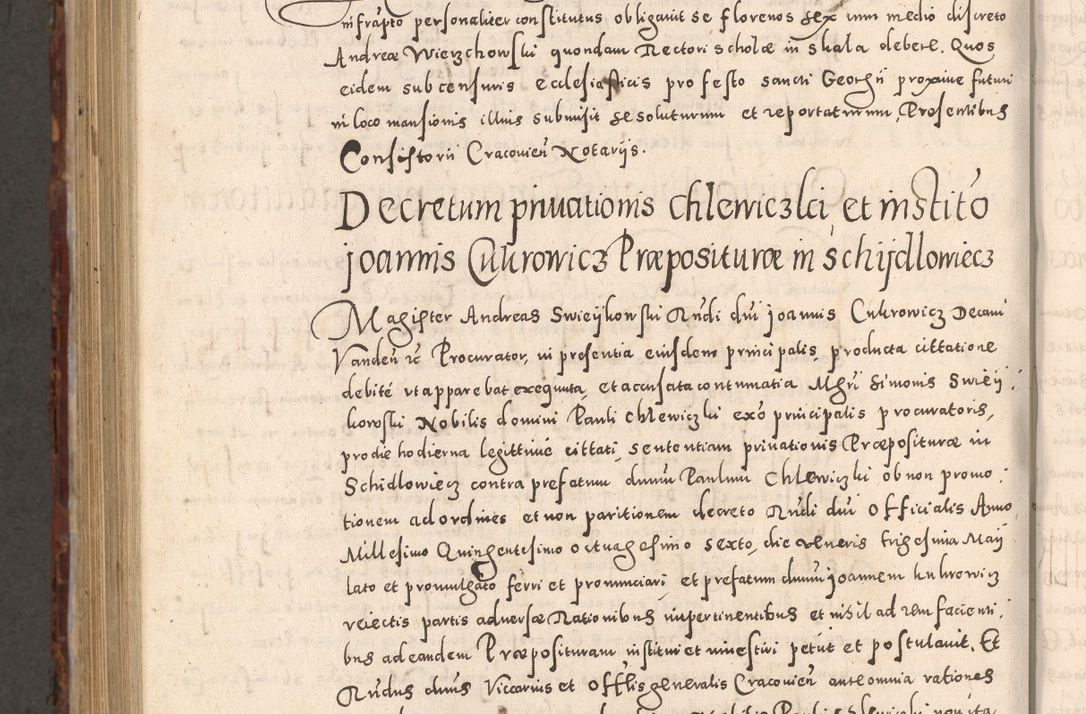 infrapto personaliter constitutus obligavit se florenos sex inm medio discreto
Andreæ Wierzchowski quondam Rectori scholæ in Skala debere. Quos
eidem sub censuris ecclesiasticis pro festo sancti Georgii proxime futuri
in loco mansionis illius submisit se soluturum et reportaturum, Presentibus
Consistorii Cracovien Notariis.
Decretum privationis Chlewiczki et instito
Joannis Cukrowicz Præposituræ in Schijdlowiecz
Magister Andreas Swieykowski Rndi dni Joannis Cukrowicz Decani
Vanden rc Procurator, in presentia eiusdem principalis, producta cittatione
debite ut apparebat exequuta, et accusata contumatia Mgri Simonis Swiey:
kowski Nobilis domini Pauli Chlewiczki ex o principalis procuratoris,
pro die hodierna legittime cittati, sententiam privationis Præposituræ in
Schidlowiecz contra prefatum dnum Paulum Chlewiczki, ob non promo:
tionem ad ordines et non paritionem decreto Rndi dni Officialis Anno
Millesimo Quingentesimo octuagesimo sexto, die veneris trigesima Maij
lato et promulgato ferri et pronunciari, et prefatum dnum Joannem Kukrowicz
reiectis partis adversæ Rationibus impertinentibus et nihil ad rem facienti:
bus ad eandem Præposituram institui et investiri petiit et postulavit. Et
Rndus dnus Viccarius et Offlis generalis Cracovien ante omnia rationes
Nobilis Pauli Chlewiczki non ita